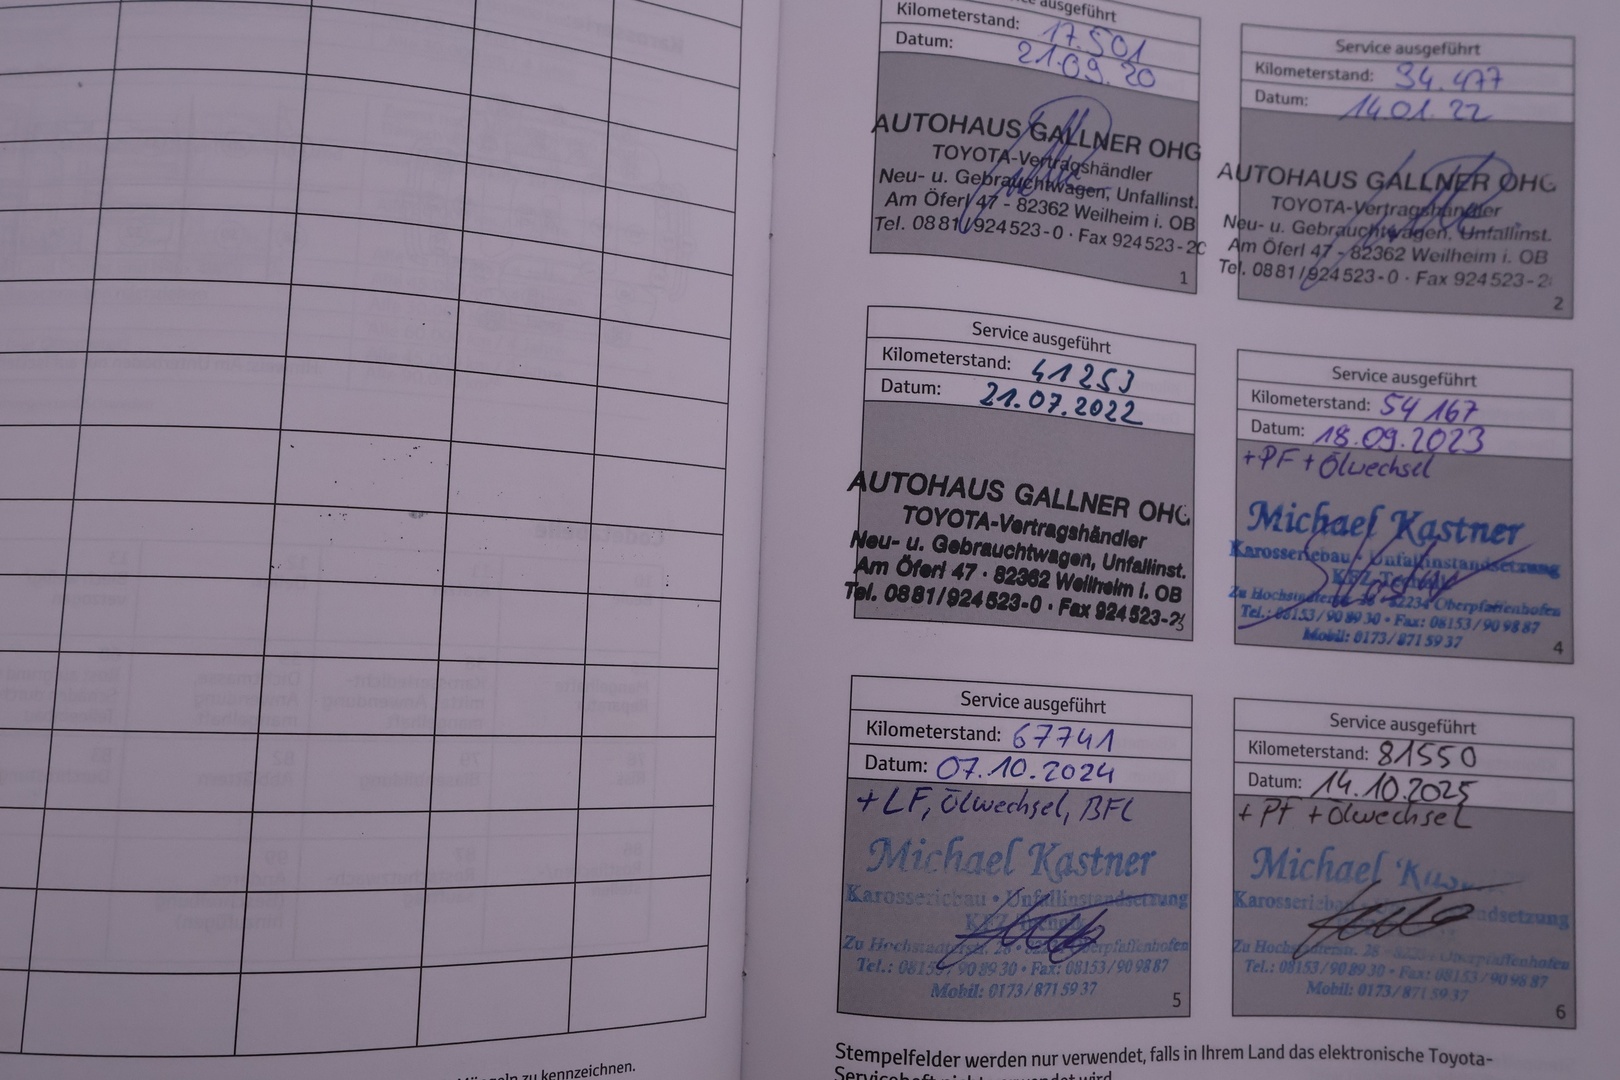 ausgeführt
Kilometerstand: 17.501
Datum: 21.09.20
AUTOHAUS GALLNER OHG
TOYOTA-Vertragshändler
Neu- u. Gebrauchtwagen, Unfallinst.
Am Öferl 47 - 82362 Weilheim i. OB
Tel. 0881/924523-0 · Fax 924523-20
1
Service ausgeführt
Kilometerstand: 34.477
Datum: 14.01.22
AUTOHAUS GALLNER OHG
TOYOTA-Vertragshändler
Neu- u. Gebrauchtwagen, Unfallinst.
Am Öferl 47 - 82362 Weilheim i. OB
Tel. 0881/924523-0 · Fax 924523-2
2
Service ausgeführt
Kilometerstand: 41253
Datum: 21.07.2022
AUTOHAUS GALLNER OHG
TOYOTA-Vertragshändler
Neu- u. Gebrauchtwagen, Unfallinst.
Am Öferl 47 · 82362 Weilheim i. OB
Tel. 0881/924523-0 · Fax 924523-2
Service ausgeführt
Kilometerstand: 54 167
Datum: 18.09.2023
+PF + Ölwechsel
Michael Kastner
Karosseriebau · Unfallinstandsetzung
KFZ Technik
Zu Hochstadterstr. 28 · 82234 Oberpfaffenhofen
Tel.: 08153/90 89 30 • Fax: 08153/90 98 87
Mobil: 0173/871 59 37
4
Service ausgeführt
Kilometerstand: 67741
Datum: 07.10.2024
+ LF, Ölwechsel, BFL
Michael Kastner
Karosseriebau • Unfallinstandsetzung
KFZ Technik
Zu Hochstadterstr. 28 • 82234 Oberpfaffenhofen
Tel.: 08153/90 89 30 • Fax: 08153/90 98 87
Mobil: 0173/871 59 37
5
Service ausgeführt
Kilometerstand: 81550
Datum: 14.10.2025
+ PF + Ölwechsel
Michael
Karosseriebau
Zu Hochstadterstr. 28 Oberpfaffenhofen
Tel.: 08153/90 89 30 • Fax: 08153/90 98 87
Mobil: 0173/871 59 37
6
Stempelfelder werden nur verwendet, falls in Ihrem Land das elektronische Toyota-
Serviceheft nicht verwendet wird.
zu kennzeichnen.